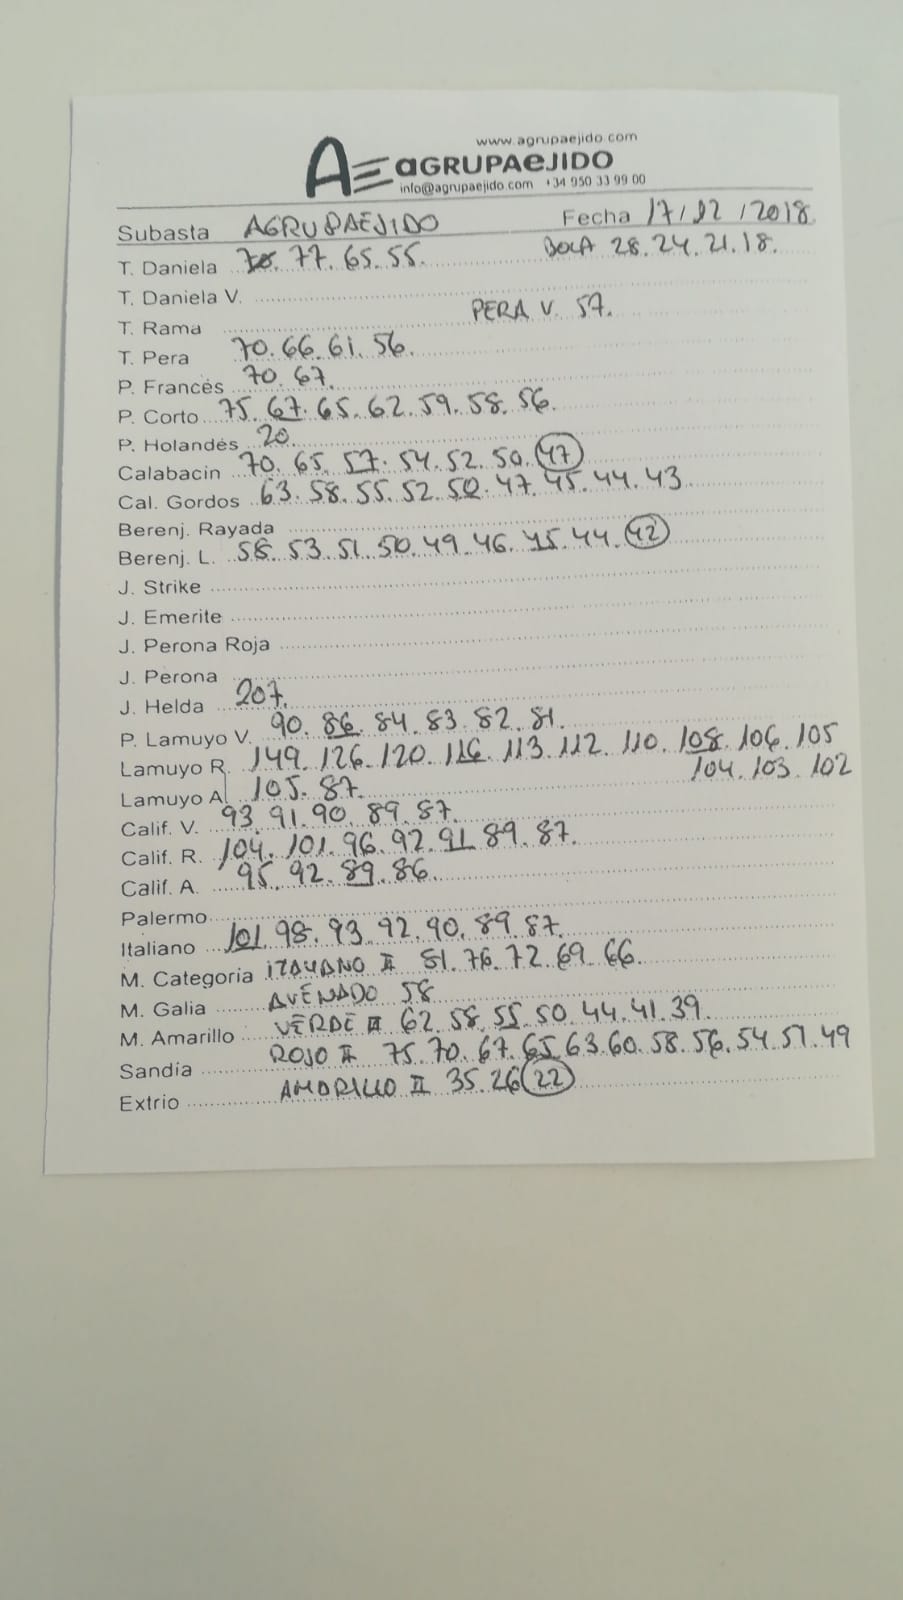 www.agrupaejido.com
AE aGRUPAeJIDO
info@agrupaejido.com +34 950 33 99 00
Subasta AGRUPAEJIDO Fecha 17/12/2018
T. Daniela 77. 65. 55. BOLA 28. 24. 21. 18.
T. Daniela V.
T. Rama PERA V. 57.
T. Pera 70. 66. 61. 56.
P. Francés 70. 67.
P. Corto 75. 67. 65. 62. 59. 58. 56.
P. Holandés 20.
Calabacin 70. 65. 57. 54. 52. 50. 47
Cal. Gordos 63. 58. 55. 52. 50. 47. 45. 44. 43
Berenj. Rayada
Berenj. L. 58. 53. 51. 50. 49. 46. 45. 44. 42
J. Strike
J. Emerite
J. Perona Roja
J. Perona
J. Helda 207.
P. Lamuyo V. 90. 86. 84. 83. 82. 81.
Lamuyo R. 149. 126. 120. 116. 113. 112. 110. 108. 106. 105
104. 103. 102
Lamuyo A. 105. 87.
Calif. V. 93. 91. 90. 89. 87.
Calif. R. 104. 101. 96. 92. 91. 89. 87.
Calif. A. 95. 92. 89. 86.
Palermo
Italiano 101. 98. 93. 92. 90. 89. 87.
M. Categoria ITALIANO II 81. 76. 72. 69. 66.
M. Galia AVENADO 58
M. Amarillo VERDE II 62. 58. 55. 50. 44. 41. 39.
Sandía ROJO II 75. 70. 67. 65. 63. 60. 58. 56. 54. 51. 49
Extrio AMARILLO II 35. 26. 22